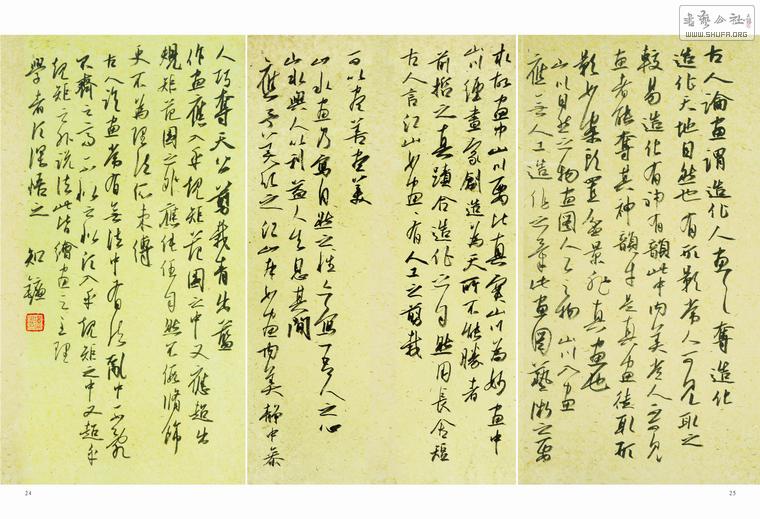 書藝公社
WWW.SHUFA.ORG
古人論畫謂造化入畫畫奪造化
造化天地自然也有形影常人可見取之
較易造化有神有韻此中內美常人不可見
畫者能奪其神韻才是真畫徒取形
影如案頭置盆景非真畫也
山川自然之物畫圖人工之物山川入畫
應無人工造作之氣此畫圖藝術之要
求故畫中山川要比真實山川為妙畫中
山川經畫家創造為天所不能勝者
前哲之真蹟合造化之自然用長舍短
古人言江山如畫有人工之剪裁
可以盡善盡美
山水畫乃寫自然之性亦寫吾人之心
山水與人以利益人生息其間
應予美化之江山本如畫內美靜中參
人巧奪天公剪裁青出藍
作畫應入乎規矩範圍之中又應超出
規矩範圍之外應純任自然不假修飾
更不為理法所束縛
古人論畫常有無法中有法亂中不亂
不齊之齊不似之似須入乎規矩之中又超乎
規矩之外說法此皆繪畫之至理
學者須深悟之
24
25